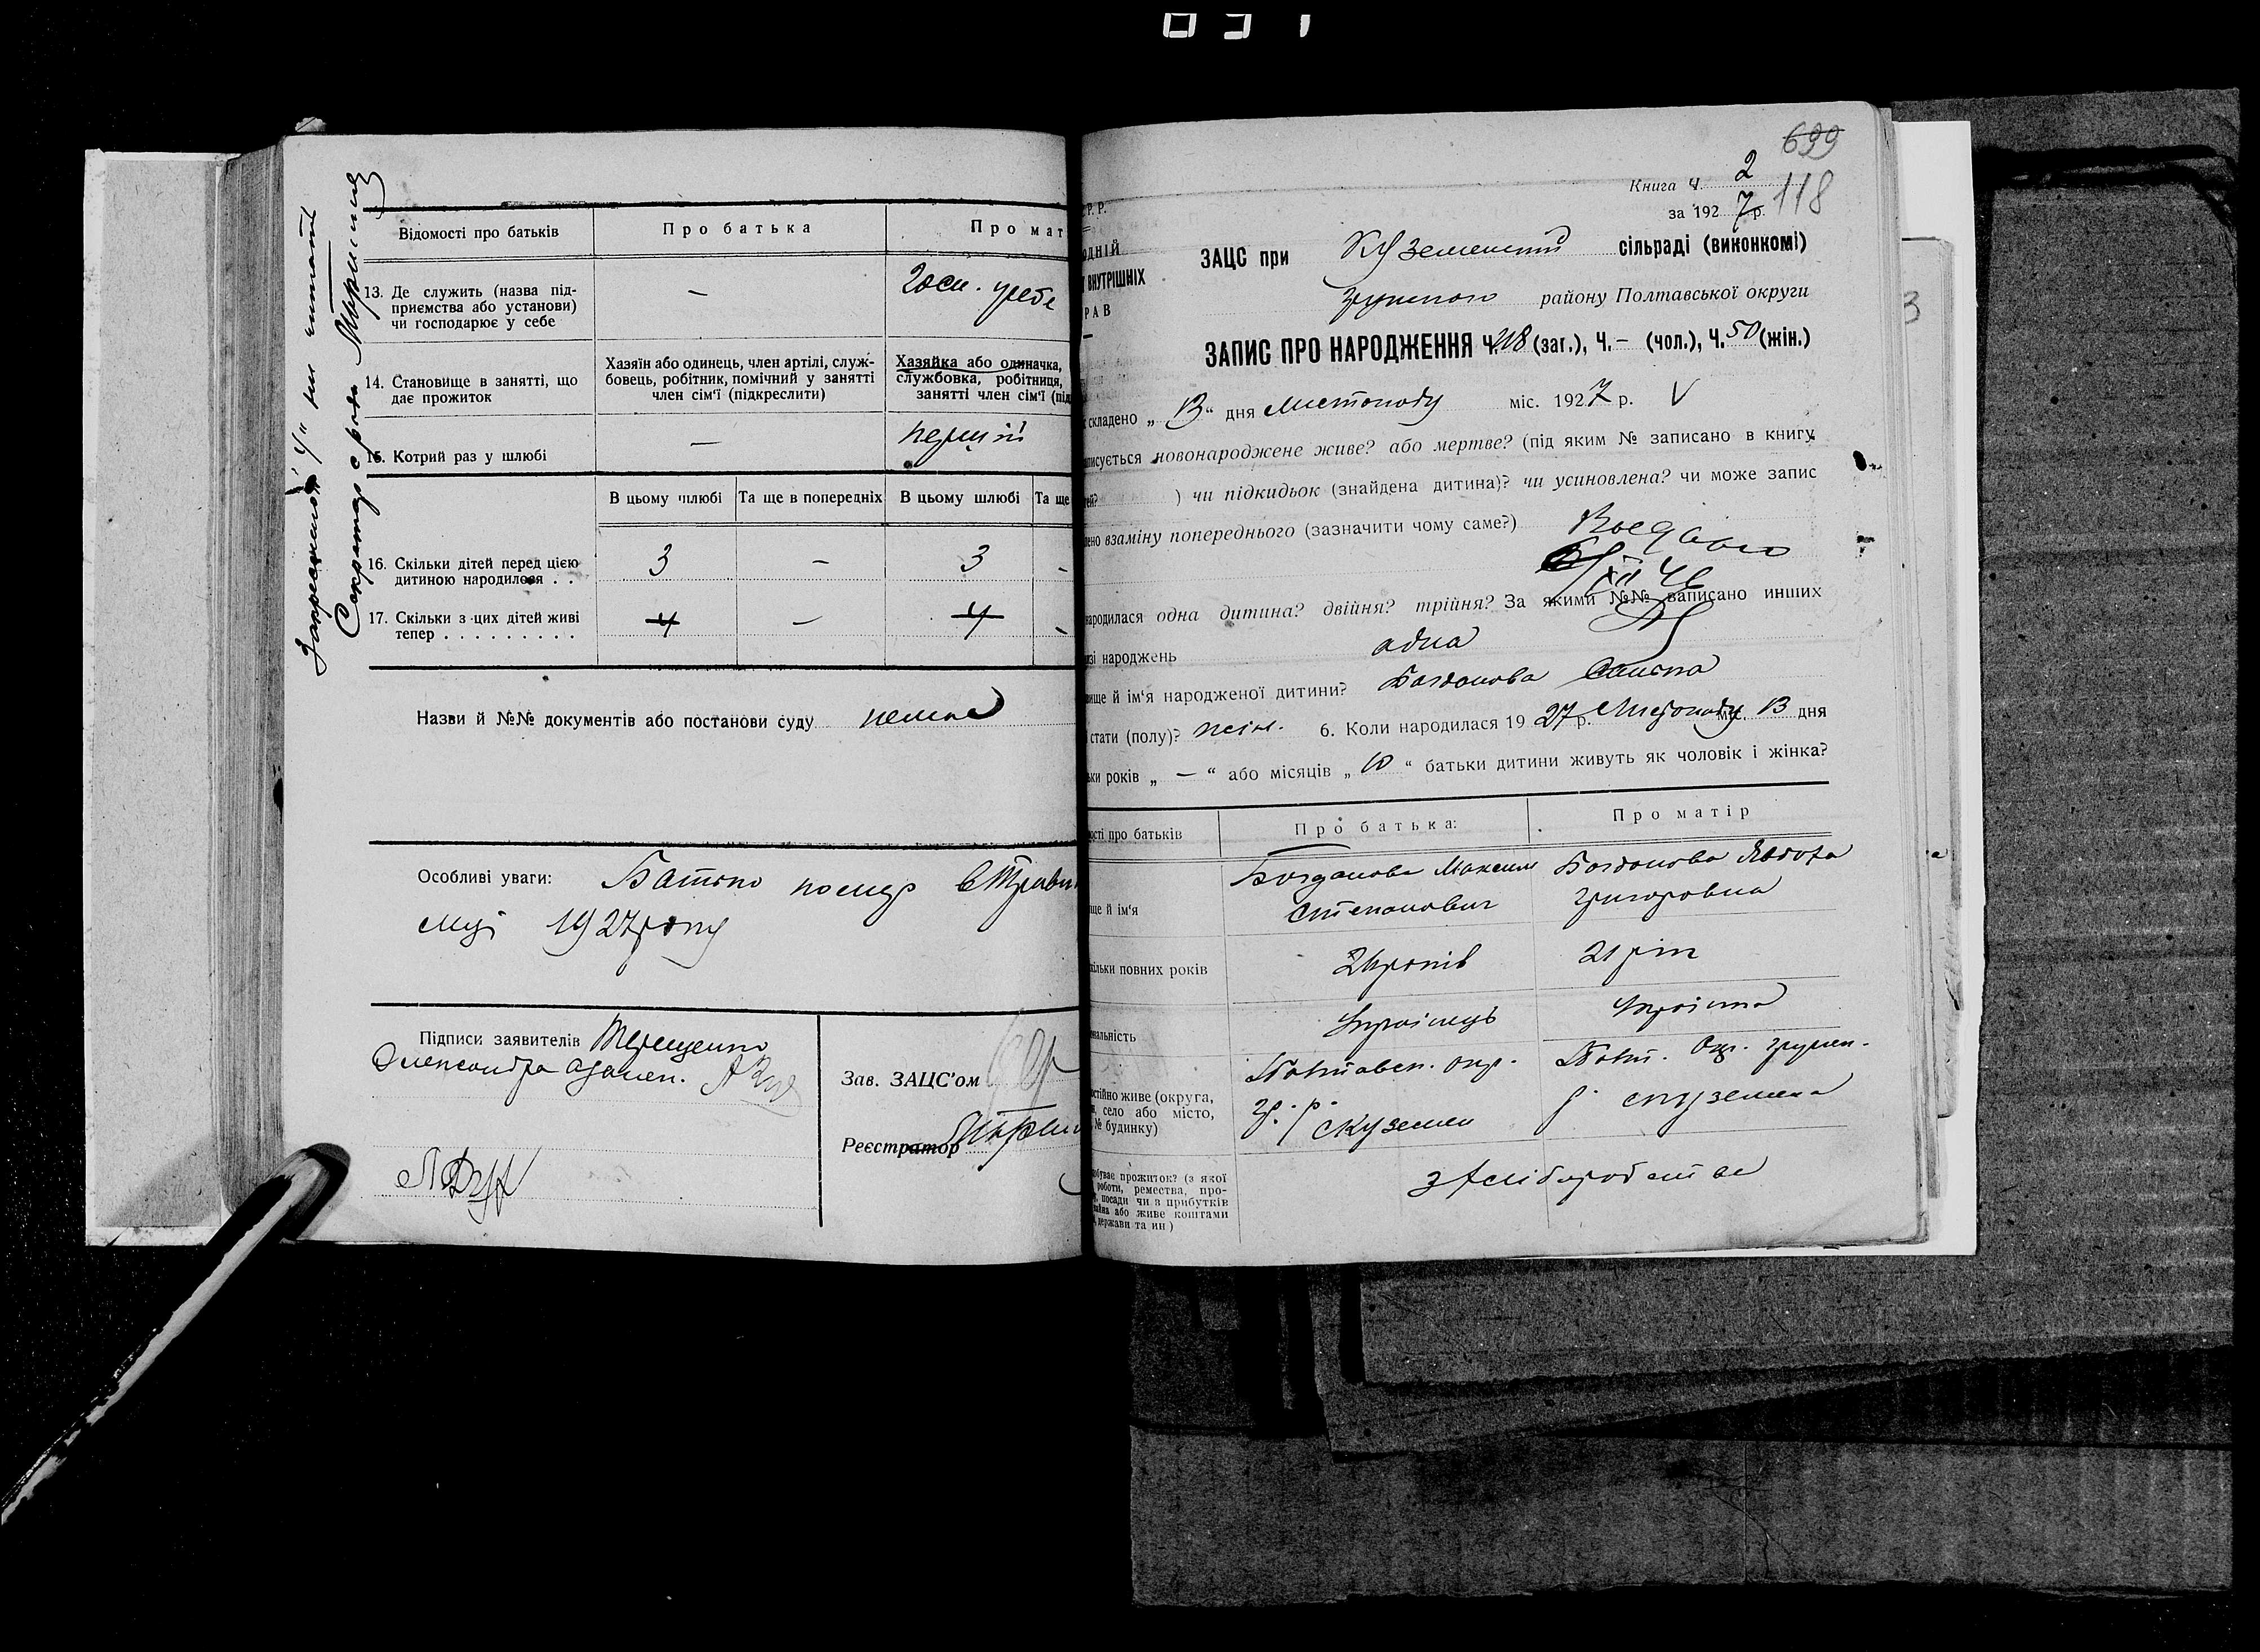 Відомості про батьків
Про батька
Про мат
13. Де служить (назва під-
приємства або установи)
чи господарює у себе
—
Госп. у себе
14. Становище в занятті, що
дає прожиток
Хазяїн або одинець, член артілі, служ-
бовець, робітник, помічний у занятті
член сім'ї (підкреслити)
Хазяйка або одиначка,
службовка, робітниця,
занятті член сім'ї (під
15. Котрий раз у шлюбі
—
перший
В цьому шлюбі
Та ще в попередніх
В цьому шлюбі
Та ще
16. Скільки дітей перед цією
дитиною народилося . .
3
—
3
-
17. Скільки з цих дітей живі
тепер . . . . . . . . .
4
—
4
-
Назви й №№ документів або постанови суду немає
Особливі уваги: Батько помер в Травн
1927 року
Підписи заявителів Терещенко
Олександра
Зав. ЗАЦС'ом
Реєстратор
699
Книга ч. 2
за 1927 р. 118
Р. Р.
одній
внутрішніх
рав
ЗАЦС при сільраді (виконкомі)
району Полтавської округи
ЗАПИС ПРО НАРОДЖЕННЯ Ч. 118 (заг.), Ч. – (чол.), Ч. 50 (жін.)
складено „ 13 “ дня Листопаду міс. 1927 р. V
писується новонароджене живе? або мертве? (під яким № записано в книгу
тей? ) чи підкидьок (знайдена дитина)? чи усиновлена? чи може запис
ено взаміну попереднього (зазначити чому саме?)
народилася одна дитина? двійня? трійня? За якими №№ записано инших
зі народжень одна
ище й ім'я народженої дитини? Богданова
стати (полу)? жін. 6. Коли народилася 1927 р. Листопаду міс. 13 дня
ьки років „ — “ або місяців „ 10 “ батьки дитини живуть як чоловік і жінка?
ості про батьків
Про батька:
Про матір
ще й ім'я
Богданова Максим
Степанович
Богданова Явдоха
Григоровна
кільки повних років
років
21 рік
нальність
Українець
Українка
стійно живе (округа,
н, село або місто,
№ будинку)
Полтавськ. окр.
Полт. Окр. Грунск.
обуває прожиток? (з якої
роботи, ремества, про-
, посади чи в прибутків
майна або живе коштами
, держави та ин)
з хліборобства